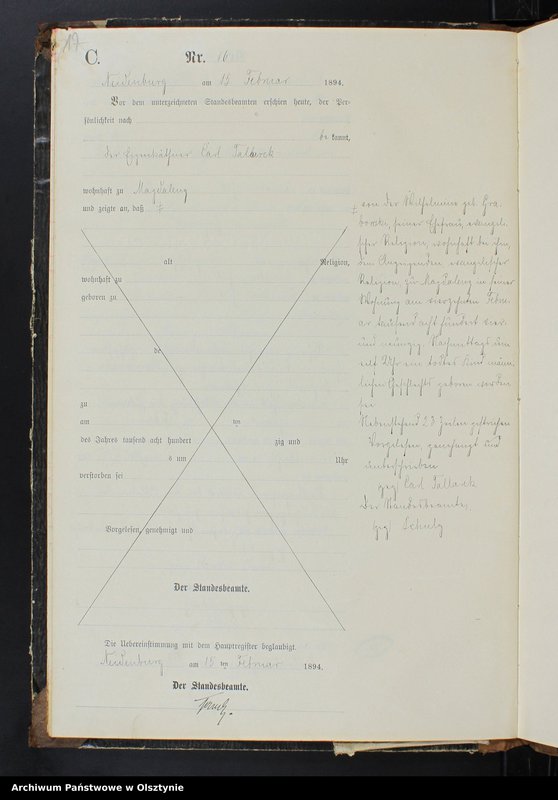 17
C.
Nr. 16
Neidenburg am 15 Februar 1894.
Vor dem unterzeichneten Standesbeamten erschien heute, der Per-
sönlichkeit nach
be kannt,
der Eigenkäthner Carl Tallarek
wohnhaft zu Magdalenz
und zeigte an, daß
alt Religion,
wohnhaft zu
geboren zu
de
zu
am ten
des Jahres tausend acht hundert zig und
s um Uhr
verstorben sei
Vorgelesen, genehmigt und
Der Standesbeamte.
Die Uebereinstimmung mit dem Hauptregister beglaubigt.
Neidenburg am 15 ten Februar 1894.
Der Standesbeamte.
von der Wilhelmine geb. Gra-
bowski, seiner Ehefrau, evangeli-
scher Religion, wohnhaft bei ihm,
dem Anzeigenden evangelischer
Religion, zu Magdalenz in seiner
Wohnung am vierzehnten Febru-
ar tausend acht hundert vier
und neunzig Nachmittags um
acht Uhr ein todtes Kind männ-
lichen Geschlechts geboren worden
sei
Nebenstehend 23 Zeilen gestrichen
Vorgelesen, genehmigt und
unterschrieben
gez. Carl Tallarek
Der Standesbeamte,
gez. Schulz
Archiwum Państwowe w Olsztynie